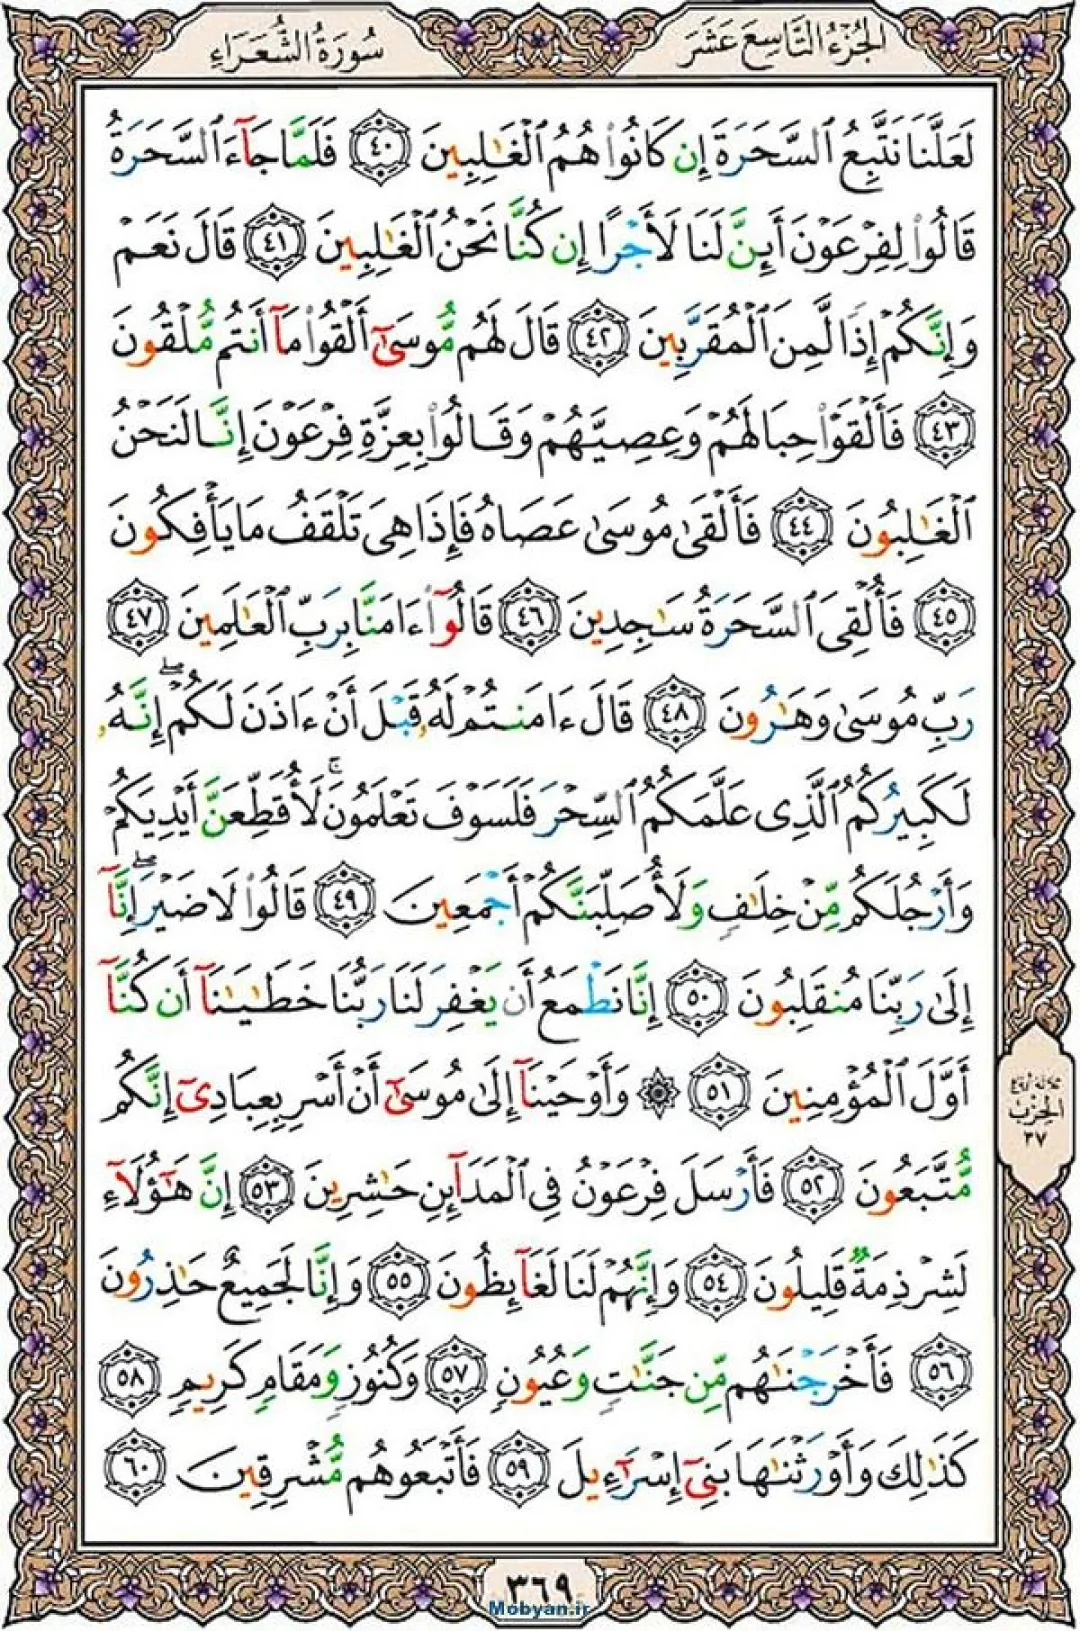 الجزء التاسع عشر
سورة الشعراء
لَعَلَّنَا نَتَّبِعُ ٱلسَّحَرَةَ إِن كَانُوا۟ هُمُ ٱلْغَـٰلِبِينَ ﴿٤٠﴾ فَلَمَّا جَآءَ ٱلسَّحَرَةُ
قَالُوا۟ لِفِرْعَوْنَ أَئِنَّ لَنَا لَأَجْرًا إِن كُنَّا نَحْنُ ٱلْغَـٰلِبِينَ ﴿٤١﴾ قَالَ نَعَمْ
وَإِنَّكُمْ إِذًا لَّمِنَ ٱلْمُقَرَّبِينَ ﴿٤٢﴾ قَالَ لَهُم مُّوسَىٰٓ أَلْقُوا۟ مَآ أَنتُم مُّلْقُونَ
﴿٤٣﴾ فَأَلْقَوْا۟ حِبَالَهُمْ وَعِصِيَّهُمْ وَقَالُوا۟ بِعِزَّةِ فِرْعَوْنَ إِنَّا لَنَحْنُ
ٱلْغَـٰلِبُونَ ﴿٤٤﴾ فَأَلْقَىٰ مُوسَىٰ عَصَاهُ فَإِذَا هِىَ تَلْقَفُ مَا يَأْفِكُونَ
﴿٤٥﴾ فَأُلْقِىَ ٱلسَّحَرَةُ سَـٰجِدِينَ ﴿٤٦﴾ قَالُوٓا۟ ءَامَنَّا بِرَبِّ ٱلْعَـٰلَمِينَ ﴿٤٧﴾
رَبِّ مُوسَىٰ وَهَـٰرُونَ ﴿٤٨﴾ قَالَ ءَامَنتُمْ لَهُۥ قَبْلَ أَنْ ءَاذَنَ لَكُمْ ۖ إِنَّهُۥ
لَكَبِيرُكُمُ ٱلَّذِى عَلَّمَكُمُ ٱلسِّحْرَ فَلَسَوْفَ تَعْلَمُونَ ۚ لَأُقَطِّعَنَّ أَيْدِيَكُمْ
وَأَرْجُلَكُم مِّنْ خِلَـٰفٍ وَلَأُصَلِّبَنَّكُمْ أَجْمَعِينَ ﴿٤٩﴾ قَالُوا۟ لَا ضَيْرَ ۖ إِنَّآ
إِلَىٰ رَبِّنَا مُنقَلِبُونَ ﴿٥٠﴾ إِنَّا نَطْمَعُ أَن يَغْفِرَ لَنَا رَبُّنَا خَطَـٰيَـٰنَآ أَن كُنَّآ
أَوَّلَ ٱلْمُؤْمِنِينَ ﴿٥١﴾ ۞ وَأَوْحَيْنَآ إِلَىٰ مُوسَىٰٓ أَنْ أَسْرِ بِعِبَادِىٓ إِنَّكُم
مُّتَّبَعُونَ ﴿٥٢﴾ فَأَرْسَلَ فِرْعَوْنُ فِى ٱلْمَدَآئِنِ حَـٰشِرِينَ ﴿٥٣﴾ إِنَّ هَـٰٓؤُلَآءِ
لَشِرْذِمَةٌ قَلِيلُونَ ﴿٥٤﴾ وَإِنَّهُمْ لَنَا لَغَآئِظُونَ ﴿٥٥﴾ وَإِنَّا لَجَمِيعٌ حَـٰذِرُونَ
﴿٥٦﴾ فَأَخْرَجْنَـٰهُم مِّن جَنَّـٰتٍ وَعُيُونٍ ﴿٥٧﴾ وَكُنُوزٍ وَمَقَامٍ كَرِيمٍ ﴿٥٨﴾
كَذَٰلِكَ وَأَوْرَثْنَـٰهَا بَنِىٓ إِسْرَٰٓءِيلَ ﴿٥٩﴾ فَأَتْبَعُوهُم مُّشْرِقِينَ ﴿٦٠﴾
ثلاثة أرباع
الحزب
٣٧
٣٦٩
Mobyan.ir